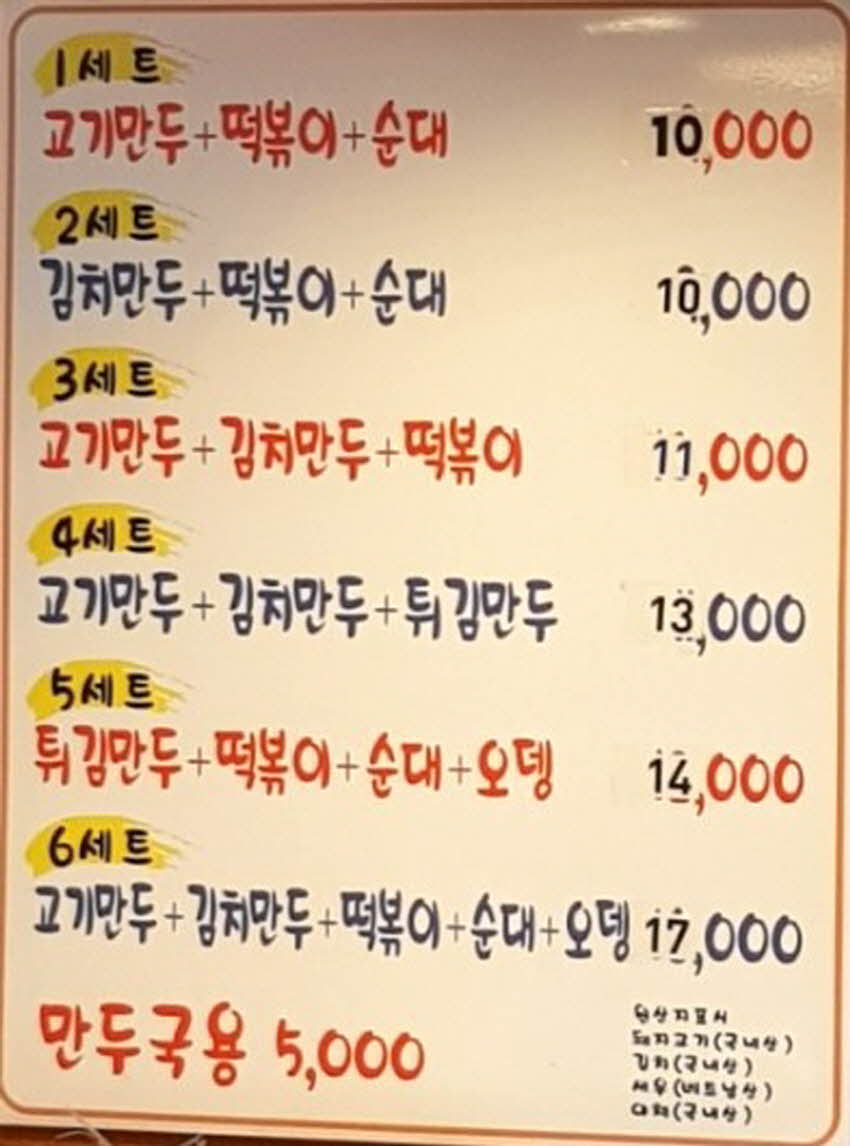 1세트
고기만두+떡볶이+순대 10,000
2세트
김치만두+떡볶이+순대 10,000
3세트
고기만두+김치만두+떡볶이 11,000
4세트
고기만두+김치만두+튀김만두 13,000
5세트
튀김만두+떡볶이+순대+오뎅 14,000
6세트
고기만두+김치만두+떡볶이+순대+오뎅 17,000
만두국용 5,000
원산지표시
돼지고기(국내산)
김치(국내산)
새우(베트남산)
대파(국내산)